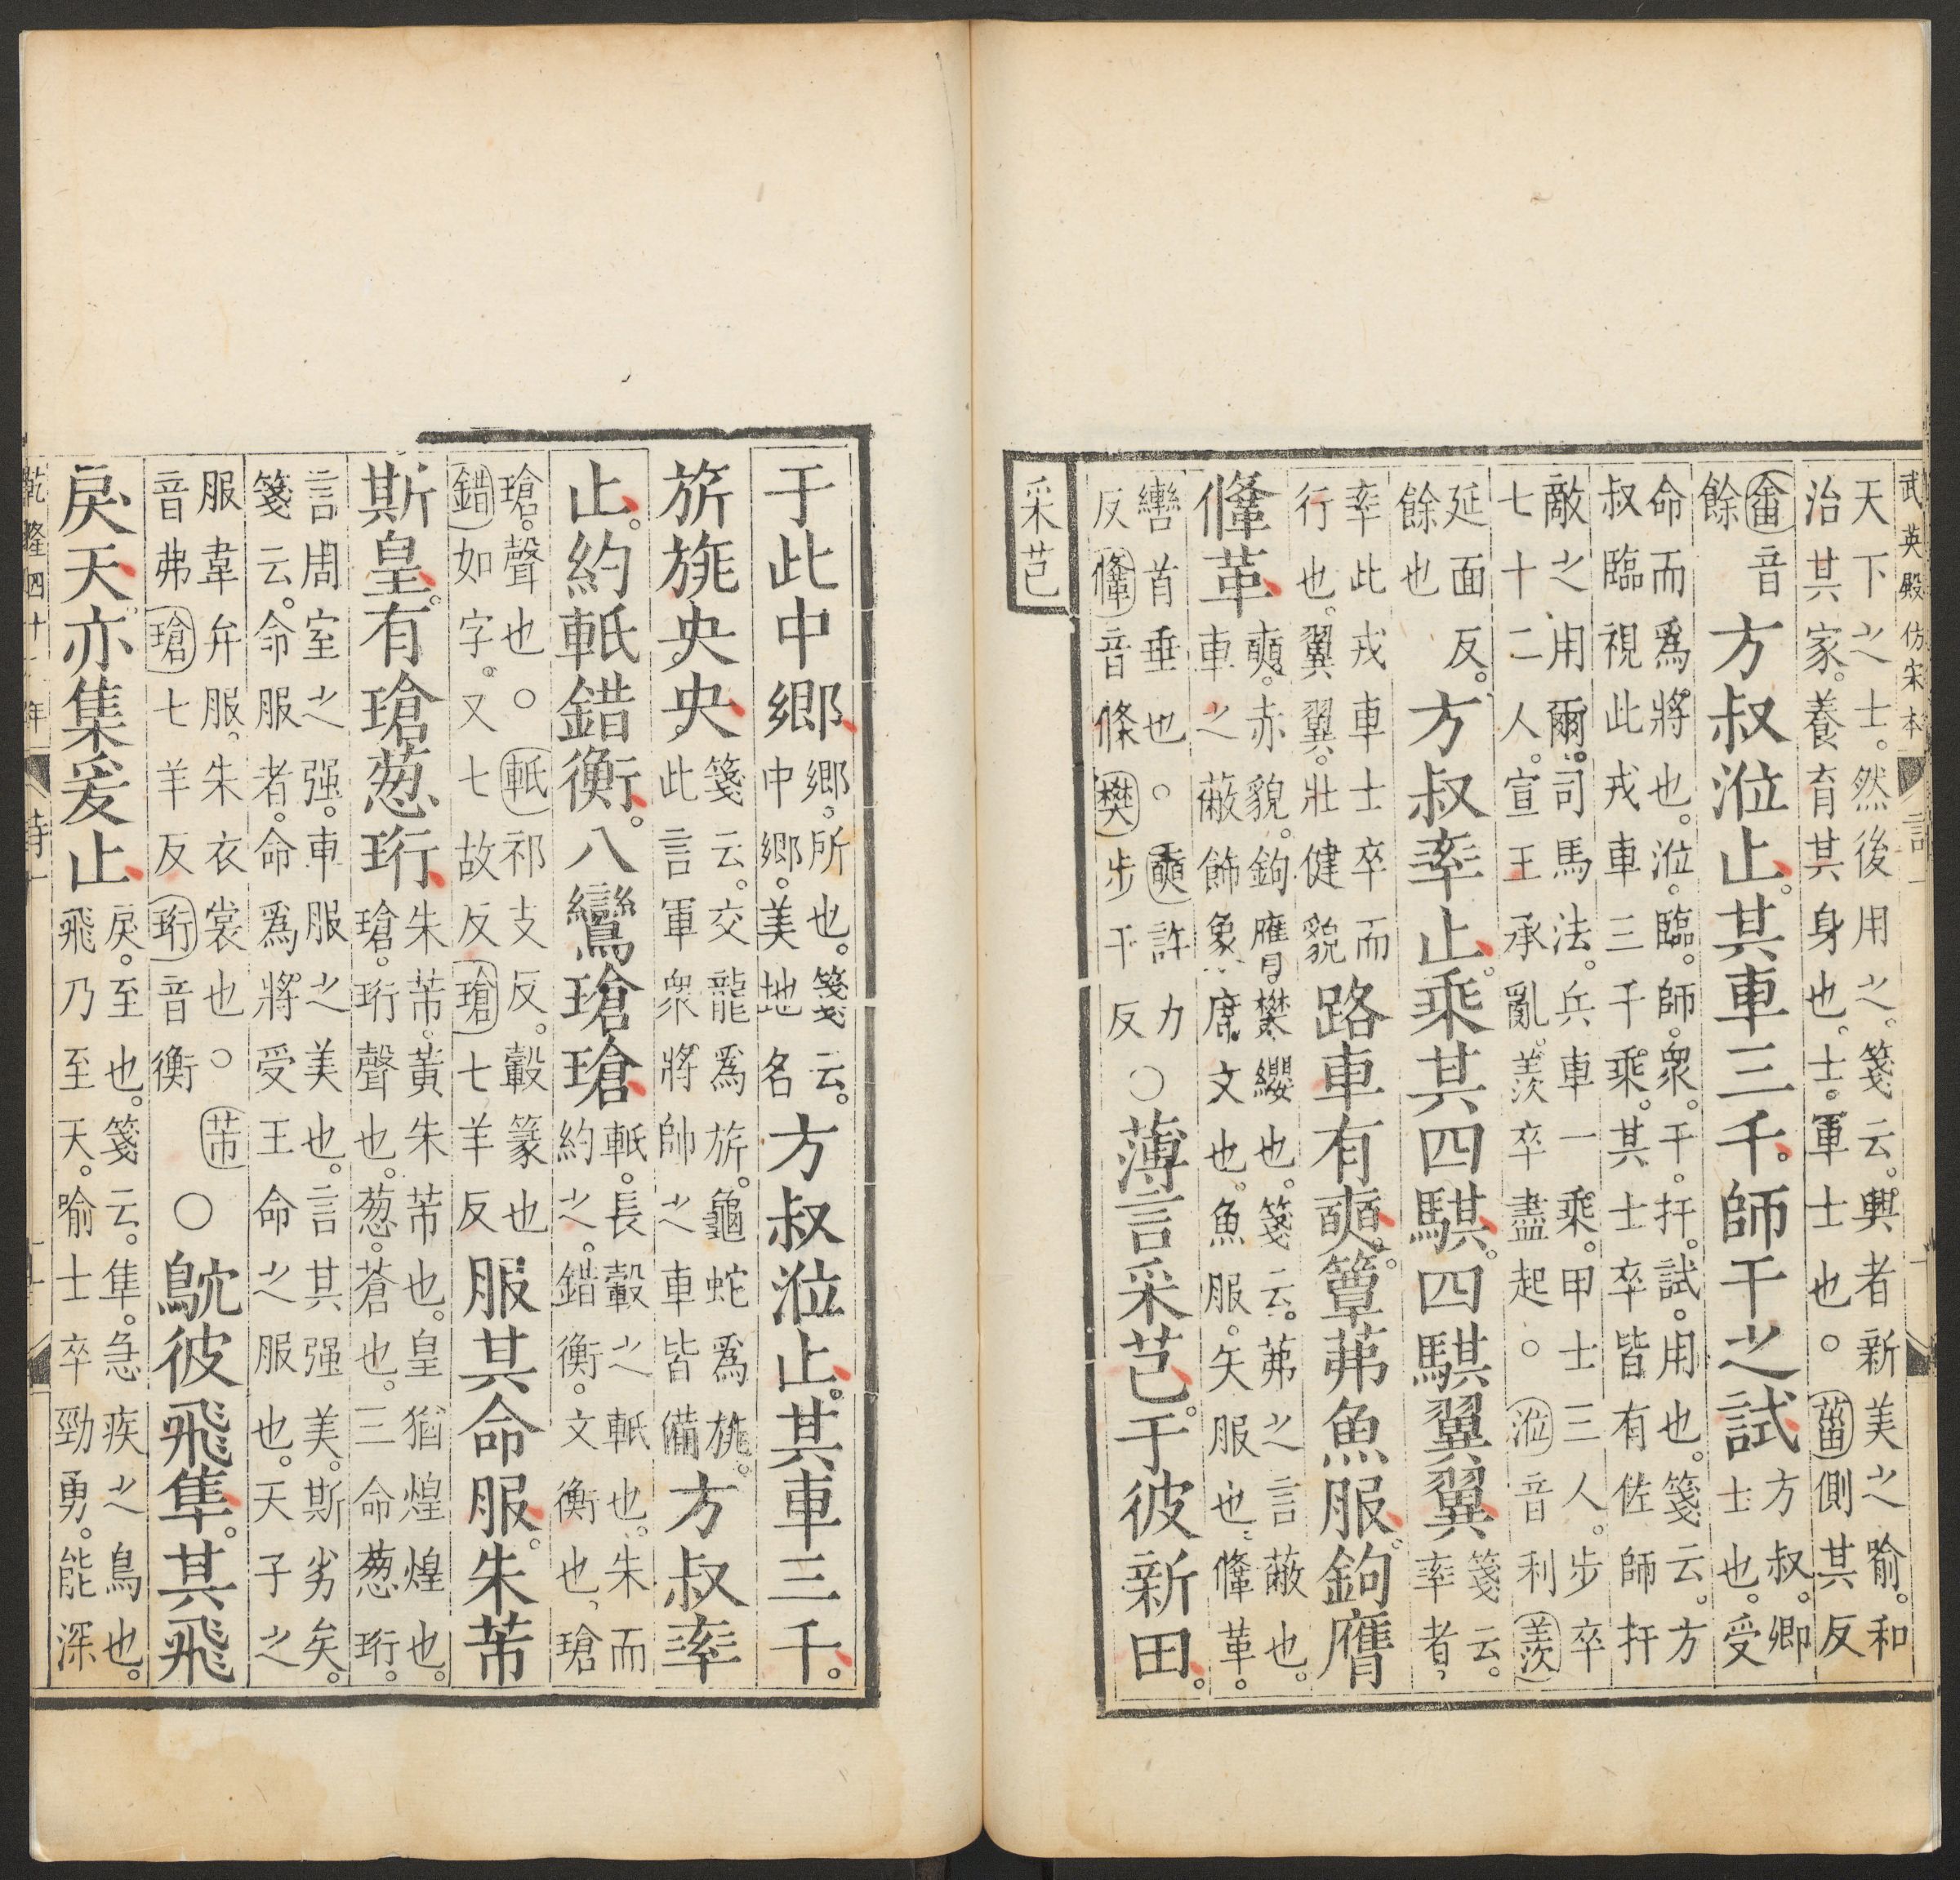 武英殿仿宋本
天下之士。然後用之。箋云。興者新美之喻。和
治其家。養育其身也。士。軍士也。○菑側其反
畬音
餘
方叔涖止。其車三千。師干之試
方叔。卿
士也。受
命而爲將也。涖。臨。師。衆。干。扞。試。用也。箋云。方
叔臨視此戎車三千乘。其士卒皆有佐師扞
敵之用爾。司馬法。兵車一乘。甲士三人。步卒
七十二人。宣王承亂。羨卒盡起。○涖音利羨
延面反。
餘也
方叔率止。乘其四騏。四騏翼翼
箋云。
率者,
率此戎車士卒而
行也。翼翼。壯健貌
路車有奭。簟茀魚服。鉤膺
鞗革
奭。赤貌。鉤膺。樊纓也。箋云。茀之言蔽也。
車之蔽飾象席文也。魚服。矢服也。鞗革。
轡首垂也。○奭許力
反鞗音條樊步干反
○薄言采芑。于彼新田。
采芑
于此中鄉
鄉。所也。箋云。
中鄉。美地名
方叔涖止。其車三千。
旂旐央央。
箋云。交龍爲旂。龜蛇爲旐。
此言軍衆將帥之車皆備
方叔率
止。約軝錯衡。八鸞瑲瑲
軝。長轂之軝也。朱而
約之。錯衡。文衡也,瑲
瑲。聲也○軝祁支反。轂篆也
錯如字。又七故反瑲七羊反
服其命服。朱芾
斯皇。有瑲葱珩
朱芾。黃朱芾也。皇猶煌煌也。
瑲。珩聲也。葱。蒼也。三命葱珩。
言周室之强。車服之美也。言其强美。斯劣矣。
箋云。命服者。命爲將。受王命之服也。天子之
服韋弁服,朱衣裳也○芾
音弗瑲七羊反珩音衡
○鴥彼飛隼。其飛
戾天。亦集爰止
戾。至也。箋云。隼。急疾之鳥也。
飛乃至天。喻士卒勁勇。能深
乾隆四十
年